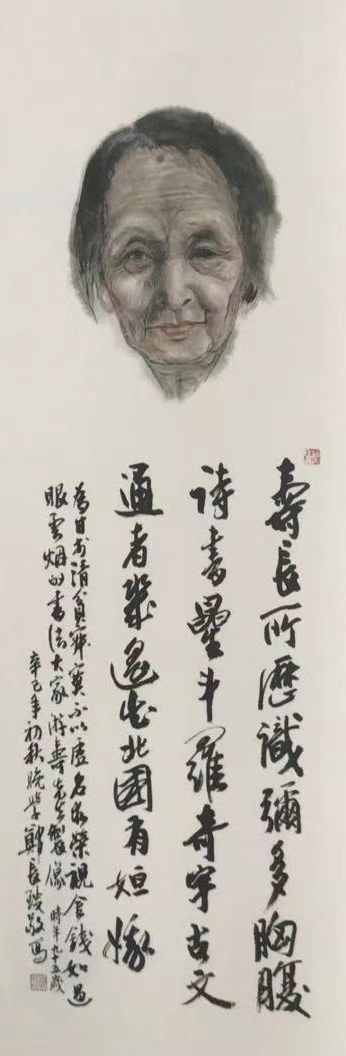 壽長所歷識彌多胸腹
詩書星斗羅奇字古文
通者幾北國有姮娥
為甘於清貧寂寞不以虛名為榮視金錢如過
眼雲烟的書法大家游壽先生製像 時年九十五歲
辛巳年初秋晚學鄭長敬寫